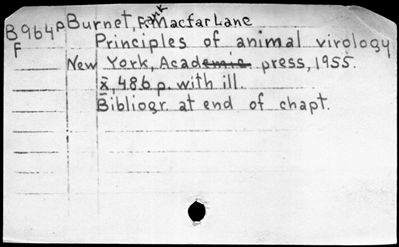 B964p Burnet, Frank Macfarlane
F
Principles of animal virology
New York, Academic press, 1955.
x, 486 p. with ill.
Bibliogr. at end of chapt.